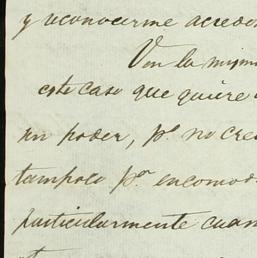 y reconocerme acreedor
Von la mism
este caso que quiere
un poder, pr. no cre
tampoco pr. encomod
particularmente cuan